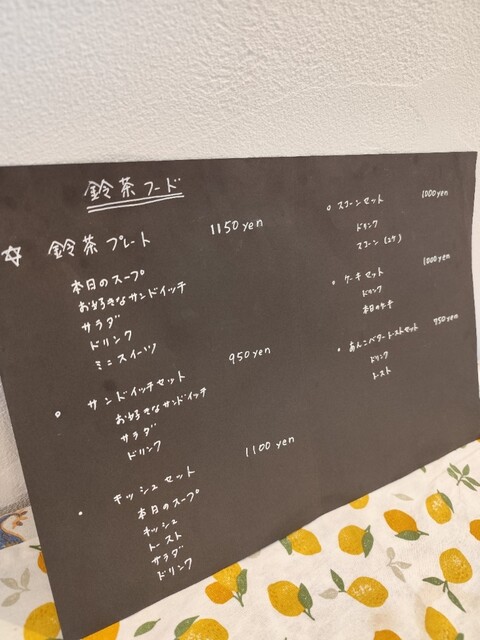 鈴茶フード
☆ 鈴茶プレート 1150yen
本日のスープ
お好きなサンドイッチ
サラダ
ドリンク
ミニスイーツ
。サンドイッチセット 950yen
お好きなサンドイッチ
サラダ
ドリンク
。キッシュセット 1100yen
本日のスープ
キッシュ
トースト
サラダ
ドリンク
。スコーンセット 1000yen
ドリンク
スコーン(2ケ)
。ケーキセット 1000yen
ドリンク
本日のケーキ
。あんこバタートーストセット 950yen
ドリンク
トースト